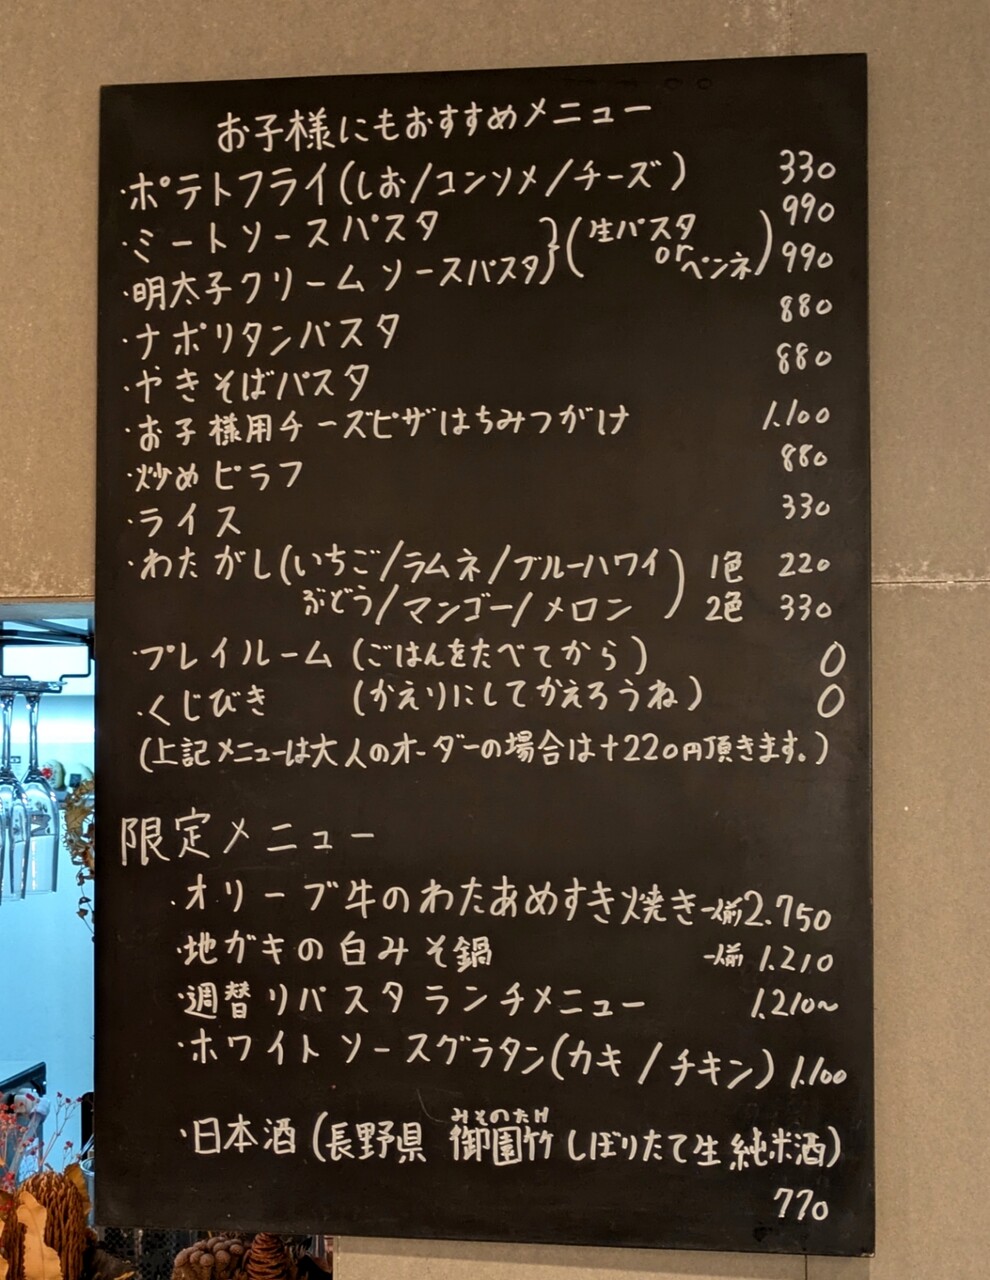 お子様にもおすすめメニュー
・ポテトフライ(しお/コンソメ/チーズ) 330
・ミートソースパスタ 990
・明太子クリームソースパスタ}(生パスタorペンネ) 990
・ナポリタンパスタ 880
・やきそばパスタ 880
・お子様用チーズピザはちみつがけ 1.100
・炒めピラフ 880
・ライス 330
・わたがし(いちご/ラムネ/ブルーハワイ 1色 220
ぶどう/マンゴー/メロン) 2色 330
・プレイルーム(ごはんをたべてから) 0
・くじびき (かえりにしてかえろうね) 0
(上記メニューは大人のオーダーの場合は+220円頂きます。)
限定メニュー
・オリーブ牛のわたあめすき焼き 一人前 2.750
・地ガキの白みそ鍋 一人前 1.210
・週替りパスタランチメニュー 1.210~
・ホワイトソースグラタン(カキ/チキン) 1.100
みそのたけ
・日本酒(長野県 御園竹 しぼりたて生 純米酒)
770